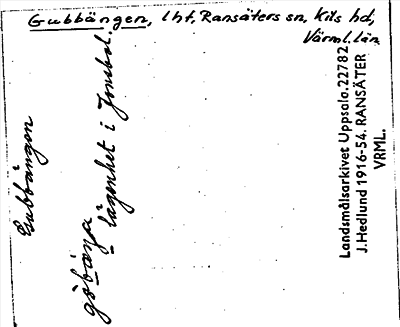 Gubbängen, lht, Ransäters sn, Kils hd,
Värml. län
Gubbängen
gòbäŋa
lägenhet i Jonsbol.
Landsmålsarkivet Uppsala. 22782
J. Hedlund 1916-54. RANSÄTER
VRML.